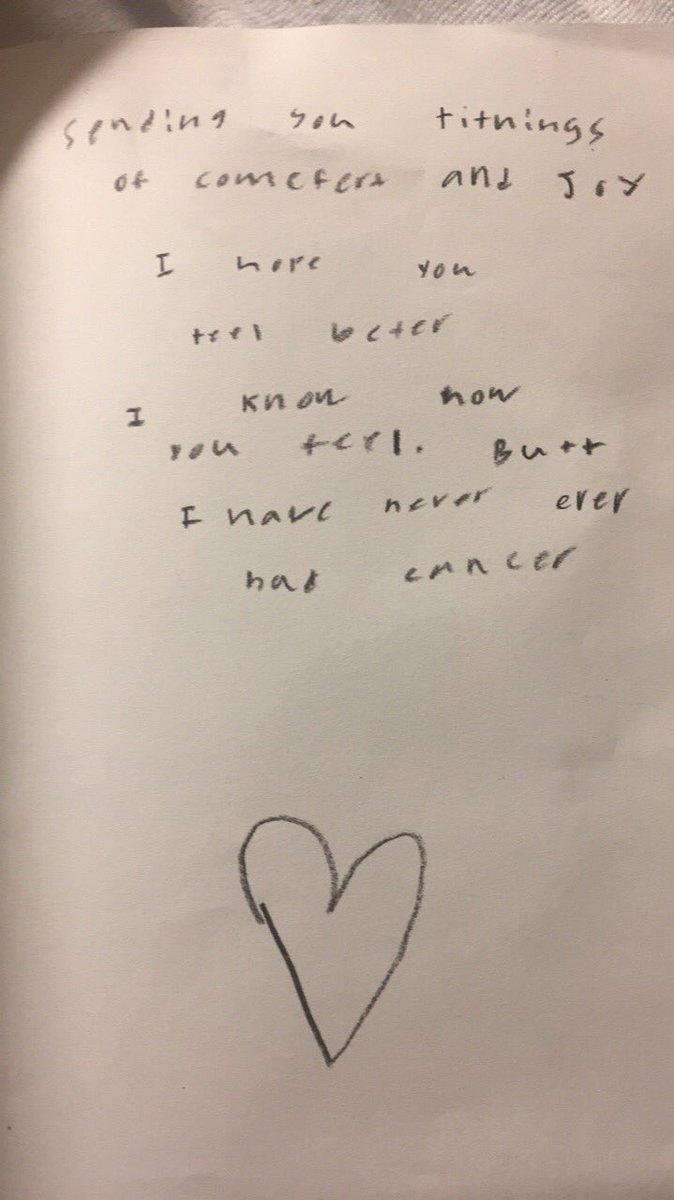 sending you titnings
of comefert and Joy
I hope you
feel beter
I know how
you feel. Butt
I have never ever
had cancer